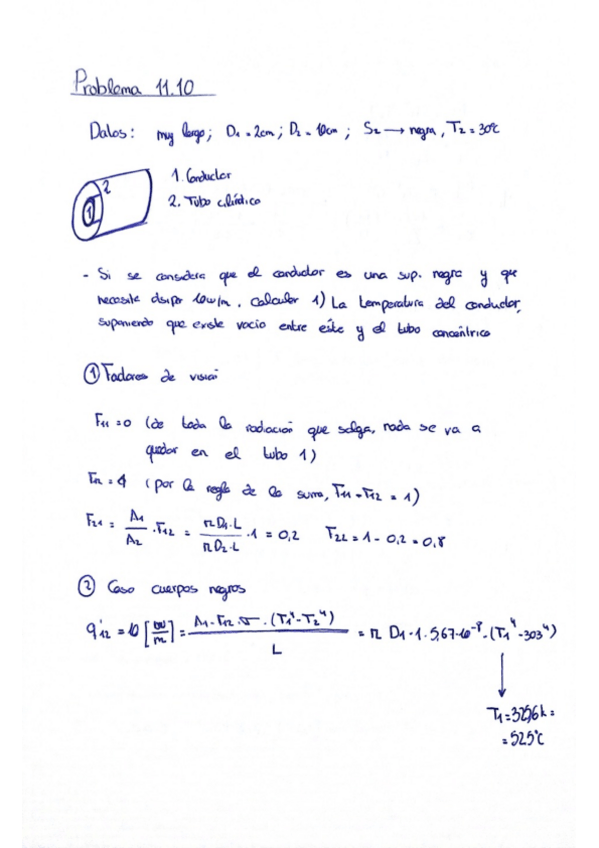 Problema 11.10
Datos: muy largo; D1 = 2cm; D2 = 10cm; S2 → negra, T2 = 30ºC
1 2
1. Conductor
2. Tubo cilíndrico
- Si se considera que el conductor es una sup. negra y que
necesite disipar 10w/m. Calcular 1) La temperatura del conductor,
suponiendo que existe vacío entre éste y el tubo concéntrico
① Factores de visión
F11 = 0 (de toda la radiación que salga, nada se va a
quedar en el tubo 1)
F12 = 1 (por la regla de la suma, F11 + F12 = 1)
F21 = A1/A2 · F12 = π D1·L / π D2·L · 1 = 0,2 F22 = 1 - 0,2 = 0,8
② Caso cuerpos negros
q'12 = 10 [w/m] = A1·F12·σ·(T1⁴-T2⁴) / L = π D1·1·5,67·10⁻⁸·(T1⁴-303⁴)
↓
T1 = 325,6k =
= 52,5ºC